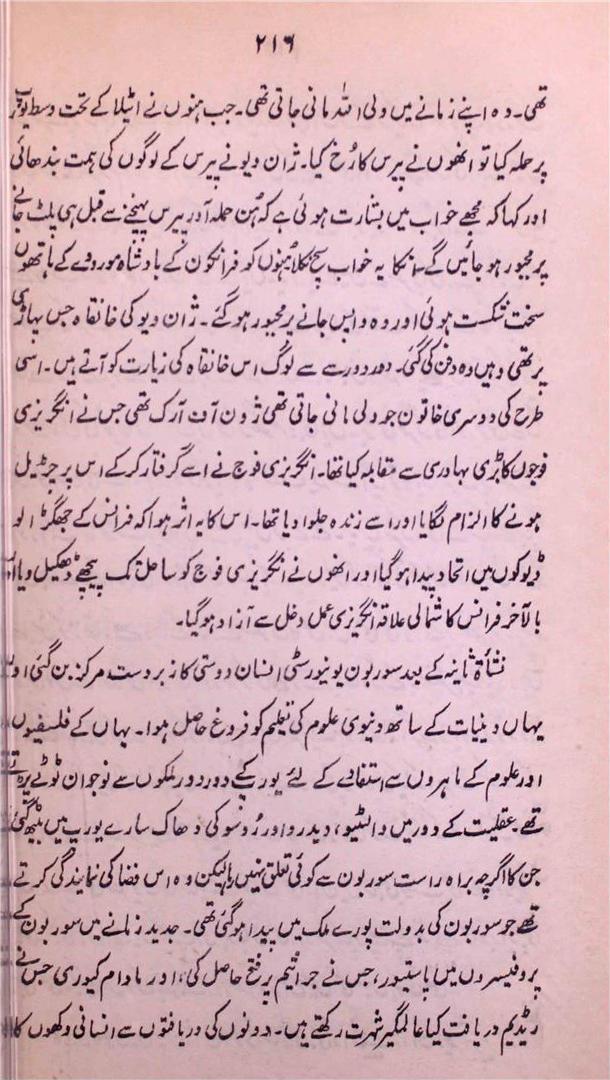 ۲۱۶
تھی۔ وہ اپنے زمانے میں ولی اللہ مانی جاتی تھی۔ جب ہنوں نے اٹیلا کے تحت وسط یورپ
پر حملہ کیا تو انھوں نے پیرس کا رُخ کیا۔ ژان دیو نے پیرس کے لوگوں کی ہمت بندھائی
اور کہا کہ مجھے خواب میں بشارت ہوئی ہے کہ ہُن حملہ آور پیرس پہنچنے سے قبل ہی پلٹ جانے
پر مجبور ہو جائیں گے۔ انکا یہ خواب سچ نکلا ہُنوں کو فرانکون کے بادشاہ موروے کے ہاتھوں
سخت شکست ہوئی اور وہ واپس جانے پر مجبور ہو گئے۔ ژان دیو کی خانقاہ جس پہاڑی
پر تھی وہیں وہ دفن کی گئی۔ دور دور سے سے لوگ اس خانقاہ کی زیارت کو آتے ہیں۔ اسی
طرح کی دوسری خاتون جو ولی مانی جاتی تھی ژون آف آرک تھی جس نے انگریزی
فوجوں کا بڑی بہادری سے مقابلہ کیا تھا۔ انگریزی فوج نے اسے گرفتار کر کے اس پر چڑیل
ہونے کا الزام لگایا اور اسے زندہ جلوا دیا تھا۔ اس کا یہ اثر ہوا کہ فرانس کے جھگڑالو
ڈیوکوں میں اتحاد پیدا ہو گیا اور انھوں نے انگریزی فوج کو ساحل تک پیچھے ڈھکیل دیا
بالآخر فرانس کا شمالی علاقہ انگریزی عمل دخل سے آزاد ہو گیا۔
نشأۃ ثانیہ کے بعد سوربون یونیورسٹی انسان دوستی کا زبردست مرکز بن گئی اور
یہاں دینیات کے ساتھ دنیوی علوم کی تعلیم کو فروغ حاصل ہوا۔ یہاں کے فلسفیوں
اور علوم کے ماہروں سے استفادے کے لئے یورپ کے دور دور ملکوں سے نوجوان ٹوٹے پڑتے
تھے۔ عقلیت کے دور میں والٹیو، دیدرو اور رُوسو کی دھاک سارے یورپ میں بیٹھ گئی
جن کا اگرچہ براہ راست سوربون سے کوئی تعلق نہیں رہا لیکن وہ اس فضا کی نمایندگی کرتے
تھے جو سوربون کی بدولت پورے ملک میں پیدا ہو گئی تھی۔ جدید زمانے میں سوربون کے
پروفیسروں میں پاستیور، جس نے جراثیم پر فتح حاصل کی، اور مادام کیوری جس نے
ریڈیم دریافت کیا عالمگیر شہرت رکھتے ہیں۔ دونوں کی دریافتوں سے انسانی دکھوں کا